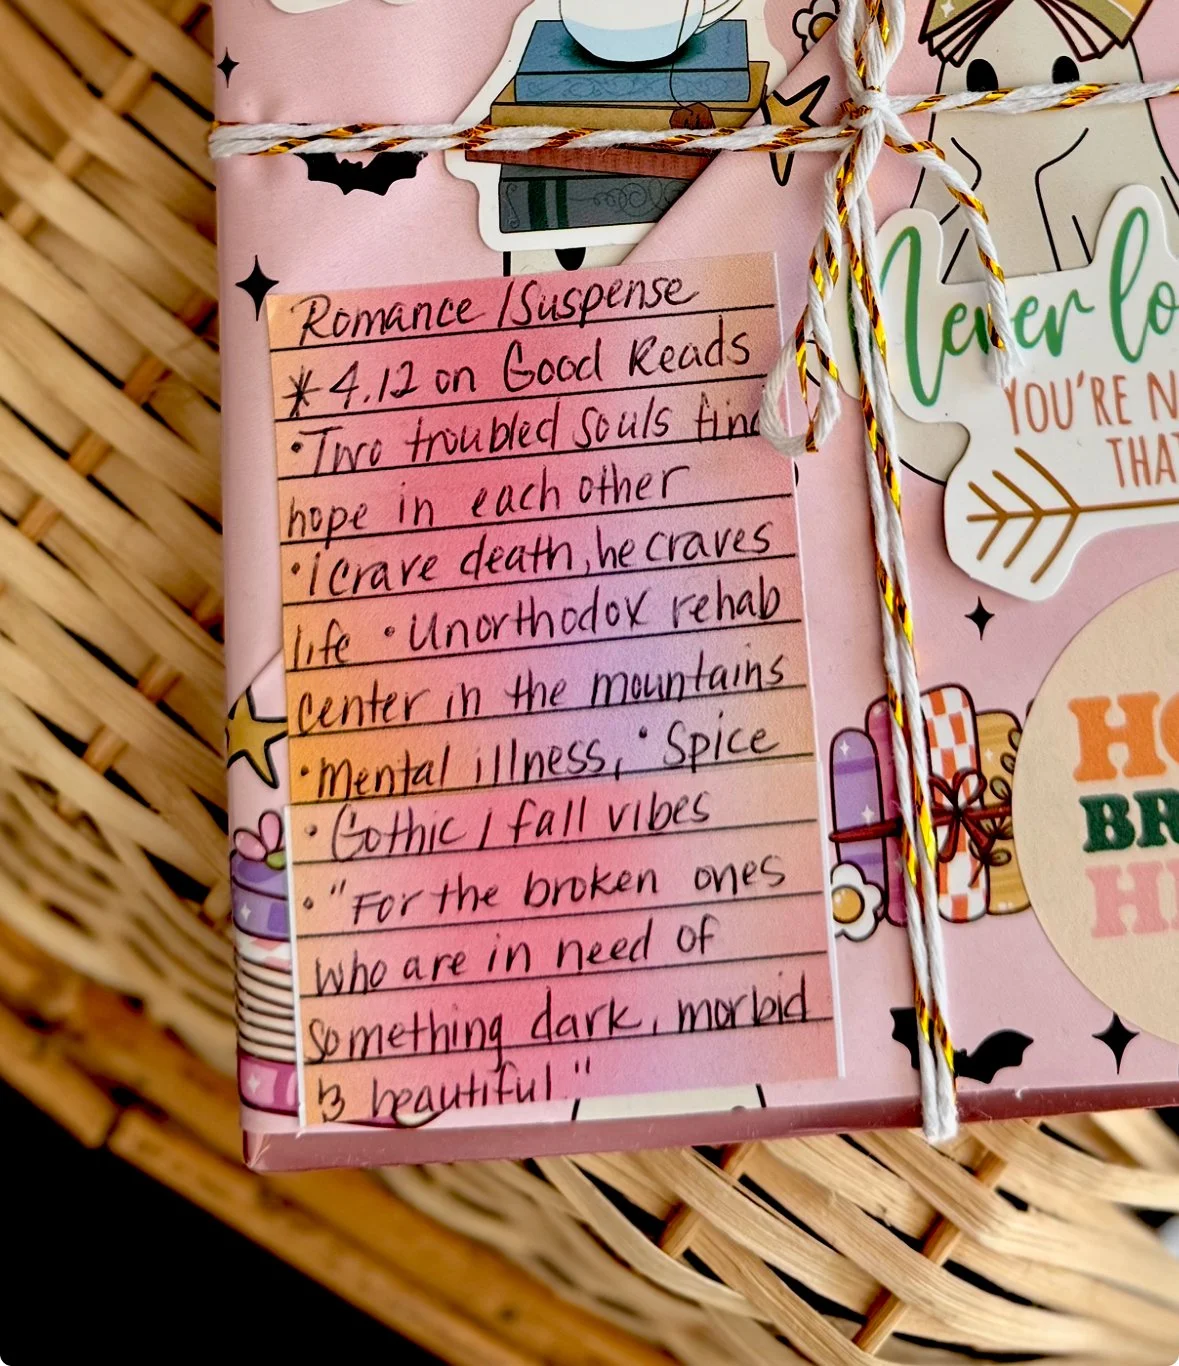 Romance / Suspense
* 4.12 on Good Reads
• Two troubled souls find
hope in each other
• i crave death, he craves
life • Unorthodox rehab
center in the mountains
• Mental illness, • Spice
• Gothic / fall vibes
• "For the broken ones
who are in need of
something dark, morbid
& beautiful."
Never lo
YOU'RE N
THA
HO
BR
HE